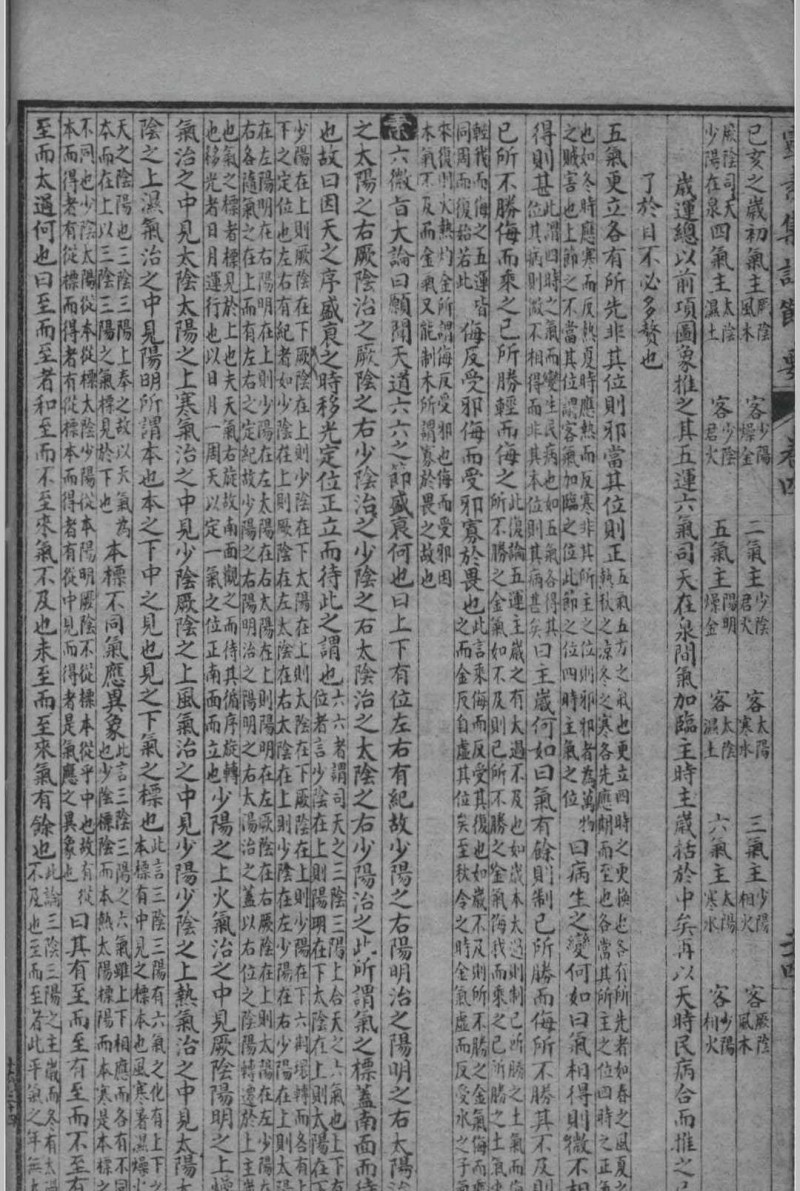 巳亥之歲初氣主厥陰風木 客少陽燥金 二氣主少陰君火 客太陽寒水 三氣主少陽相火 客厥陰風木
厥陰司天少陽在泉四氣主太陰濕土 客少陰君火 五氣主陽明燥金 客太陰濕土 六氣主太陽寒水 客少陽相火
歲運總以前項圖象推之其五運六氣司天在泉間氣加臨主時主歲括於中矣再以天時民病合而推之
了於目不必多贅也
五氣更立各有所先非其位則邪當其位則正五氣五方之氣也更立四時之更換也各有所先者如春之風夏之
熱秋之凉冬之寒各先應期而至也各當其所主之位四時之正氣
也如冬時應寒而反熱夏時應熱而反寒非其所主之位則邪邪者為萬物
之賊害也上節之不當其位謂客氣加臨之位此節之位四時主氣之位曰病生之變何如曰氣相得則微不相
得則甚此謂四時之氣而變生民病也如五氣各得其
位其病則微不相得而非其本位則其病甚矣曰主歲何如曰氣有餘則制已所勝而侮所不勝其不及則
已所不勝侮而乘之已所勝輕而侮之此復論五運主歲之有太過不及也如歲本太過則制已所勝之土氣而侮
所不勝之金氣如不及則已所不勝之金氣侮我而乘之已所勝之土氣
輕我而侮之五運皆
同周而復始若此侮反受邪侮而受邪寡於畏也此言乘侮而反受其復也如歲不及則所不勝之金氣侮而
之而金反自虛其位矣至秋令之時金氣虛而反受水之子
來復則火熱灼金所謂侮反受邪也侮而受邪因
木氣不及而金氣又能制木所謂寡於畏之故也
六微旨大論曰願聞天道六六之節盛衰何也曰上下有位左右有紀故少陽之右陽明治之陽明之右太陽治
之太陽之右厥陰治之厥陰之右少陰治之少陰之右太陰治之太陰之右少陽治之此所謂氣之標蓋南面而待
也故曰因天之序盛衰之時移光定位正立而待此之謂也六六者謂司天之三陰三陽上合天之六氣也上下
位者言少陰在上則陽明在下太陰在上則太陽在下
少陽在上則厥陰在下厥陰在上則少陰在下陽明在上則太陰在下厥陰在上則少陽在下六期環轉而各有上
下之定位也左右有紀者如少陰在上則厥陰在左太陰在右太陰在上則少陰在左少陽在右少陽在上則太陰
在左陽明在右陽明在上則少陽在左太陽在右太陽在上則陽明在左厥陰在右厥陰在上則太陽在左少陰
右各隨氣之在上而有左右之定紀故少陽之右陽明治之陽明之右太陽治之蓋以右位之陰陽轉遷於上主歲
也氣之標者標見於上也夫天氣右旋故南面觀之而待其循序旋轉
也移光者日月運行也以日月一周天以定一氣之位正南面而立也少陽之上火氣治之中見厥陰陽明之上燥
氣治之中見太陰太陽之上寒氣治之中見少陰厥陰之上風氣治之中見少陽少陰之上熱氣治之中見太陽
陰之上濕氣治之中見陽明所謂本也本之下中之見也見之下氣之標也此言三陰三陽有六氣之化有上下之
本標有中見之標本也風寒暑濕燥火
天之陰陽也三陰三陽上奉之故以天氣為
本而在上以三陰三陽之氣標見於下也本標不同氣應異象此言三陰三陽之六氣雖上下相應而各有不同
也少陰標陰而本熱太陽標陽而本寒是本標之
不同也少陰太陽從本從標太陰少陽從本陽明厥陰不從標本從乎中也故有從
本而得者有從標本而得者有從中見而得者是氣應之異象也曰其有至而至有至而不至有
至而太過何也曰至而至者和至而不至來氣不及也未至而至來氣有餘也此論三陰三陽之主歲而各有太
不及也至而至者此平氣之年無